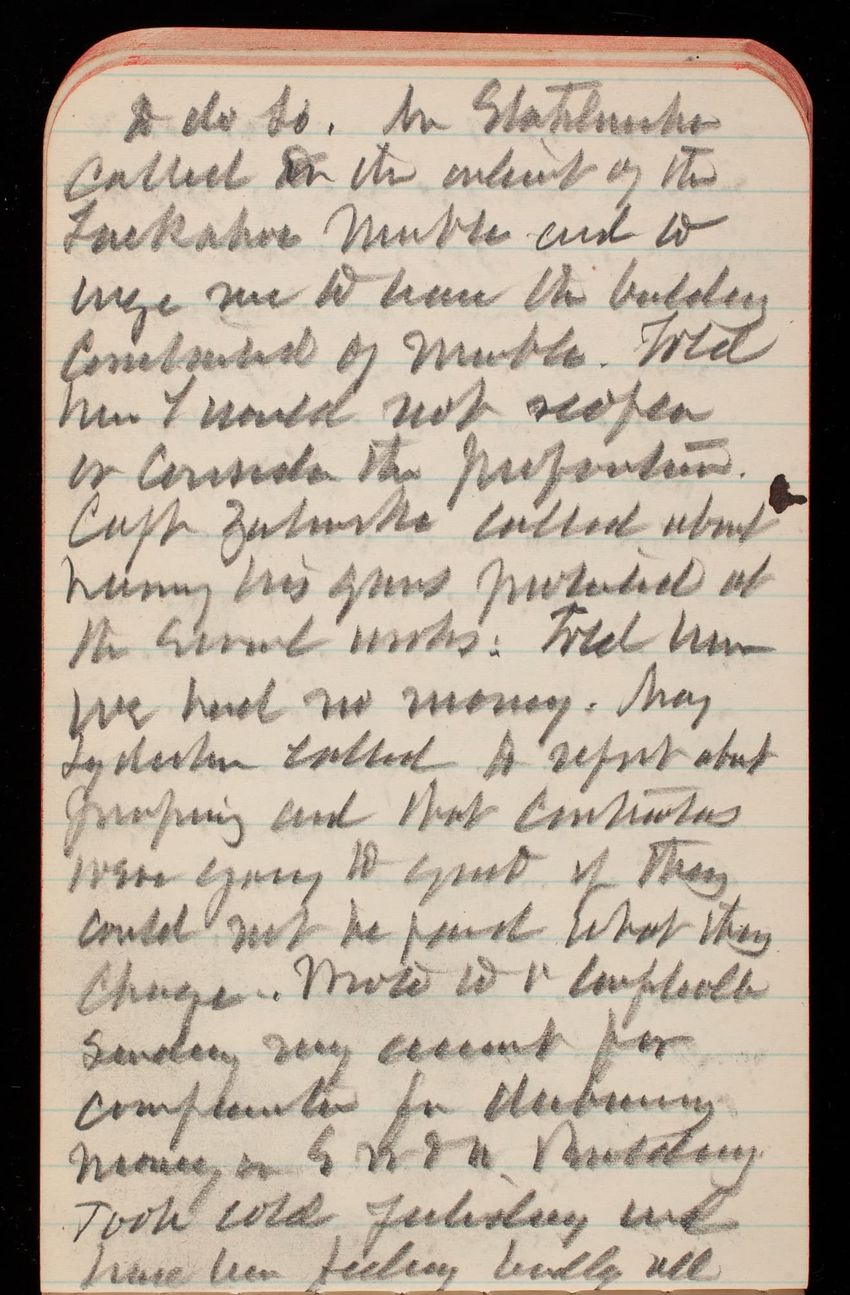 to do so. Mr
called in the interest of the
Tuckahoe Marble and to
urge me to have the building
constructed of Marble. Told
him I would not reopen
or consider the proposition.
Capt Zalinski called about
having his guns protected at
the works. Told him
we had no money. Maj
Lydecker called to report about
pumping and that contractors
were going to quit if they
could not be paid what they
charge. Wrote to
sending my account for
compensation for disbursing
money on S W & N Building
Took cold yesterday and
have been feeling badly all